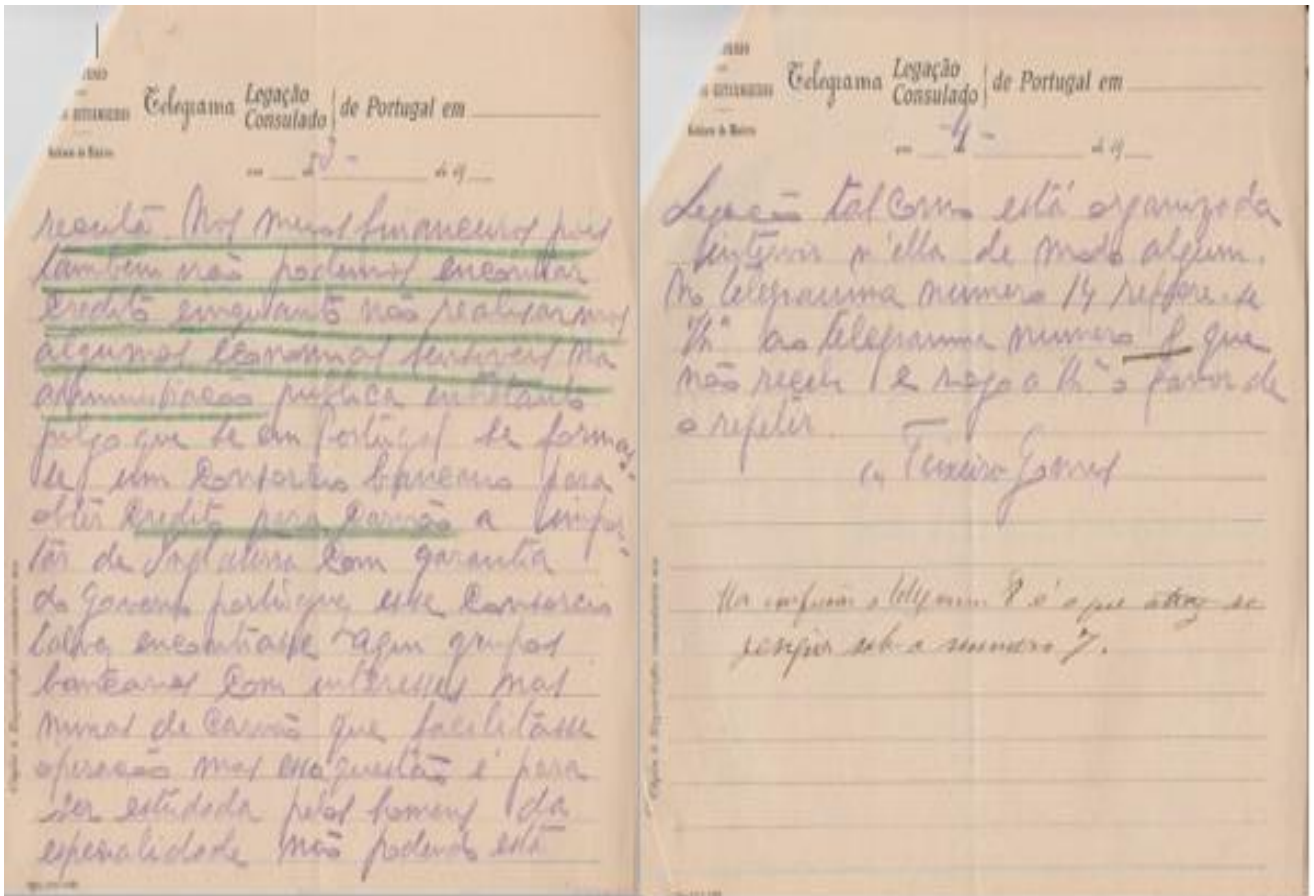 Telegrama Legação Consulado de Portugal em
-3-
receita. Nos meios financeiros pois
tambem não podemos encontrar
credito emquanto não realisarmos
algumas economias sensiveis na
administração publica entretanto
julgo que se em Portugal se formas-
se um Consorcio bancario para
obter credito para carvão a impor-
tar de Inglaterra com garantia
do Governo portuguez esse Consorcio
talvez encontrasse aqui grupos
bancarios com interesses nas
minas de carvão que facilitasse
operação mas essa questão é para
ser estudada pelos homens da
especialidade não podendo esta
Telegrama Legação Consulado de Portugal em
-4-
Legação tal como está organizada
intervir n'ella de modo algum.
No telegramma numero 14 refere-se
ao telegramma numero 8 que
não recebi e rogo a o favor de
o repetir.
Teixeira Gomes
telegrama 8 é o que
sobre o numero 7.